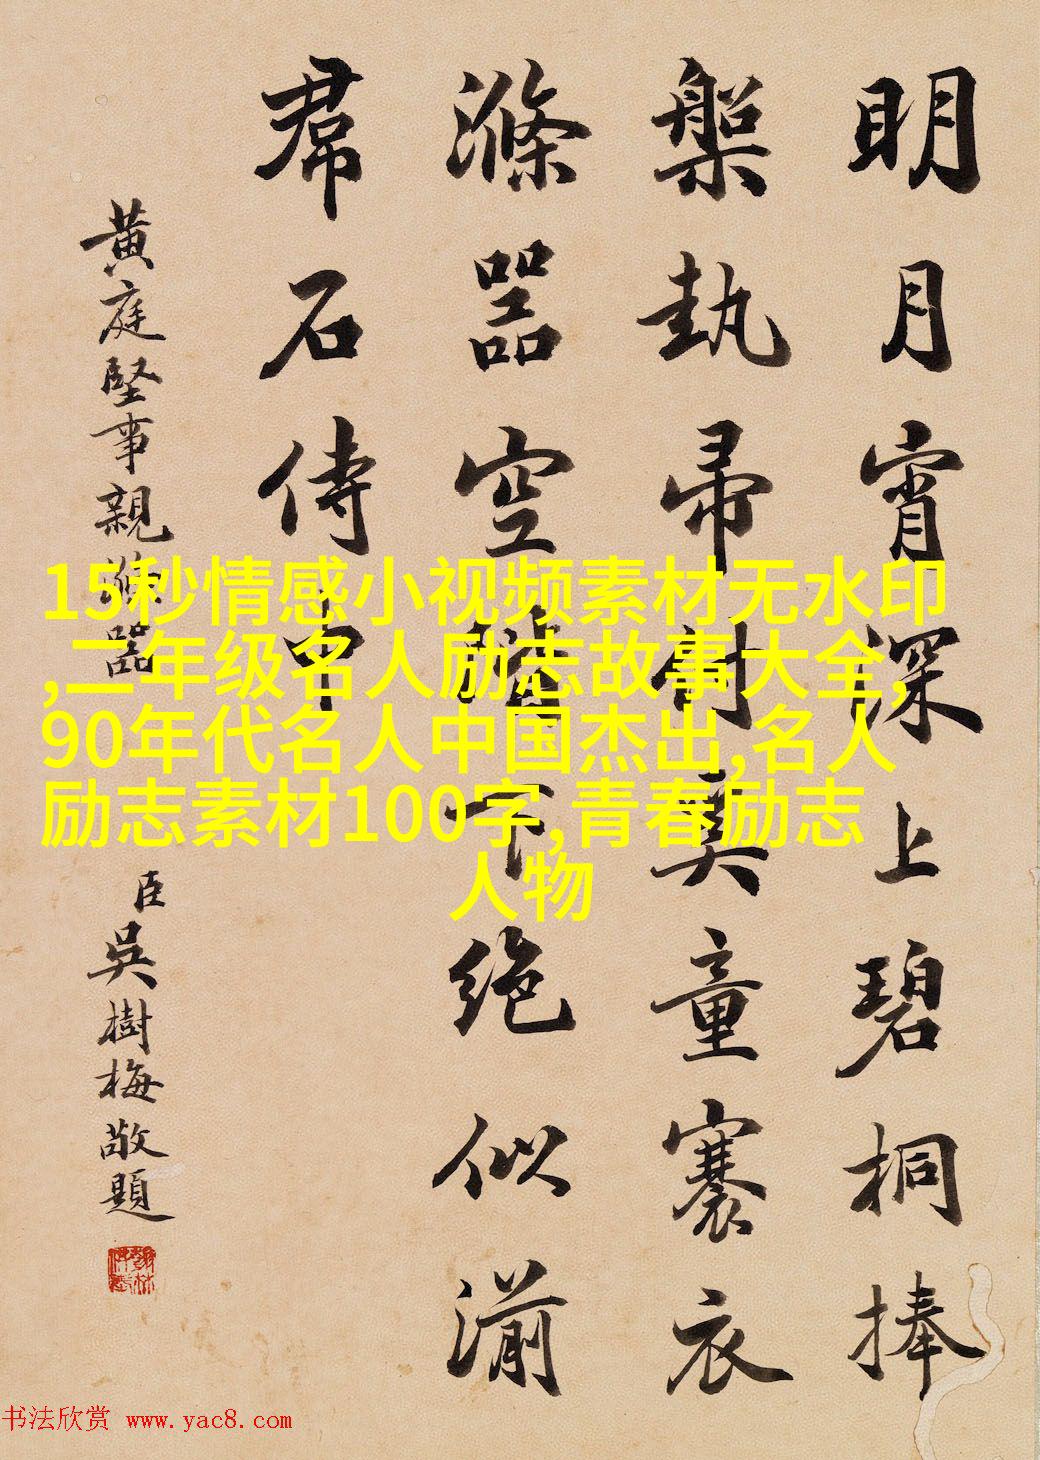 明月宵深上碧桐捧
槃執帚付奚童褰衣
滌器空階下絕似湔
帬石侍中
黃庭堅事親滌器
臣吳樹梅敬題
15秒情感小视频素材无水印
,二年级名人励志故事大全,
90年代名人中国杰出,名人
励志素材100字,青春励志
人物
书法欣赏 www.yac8.com